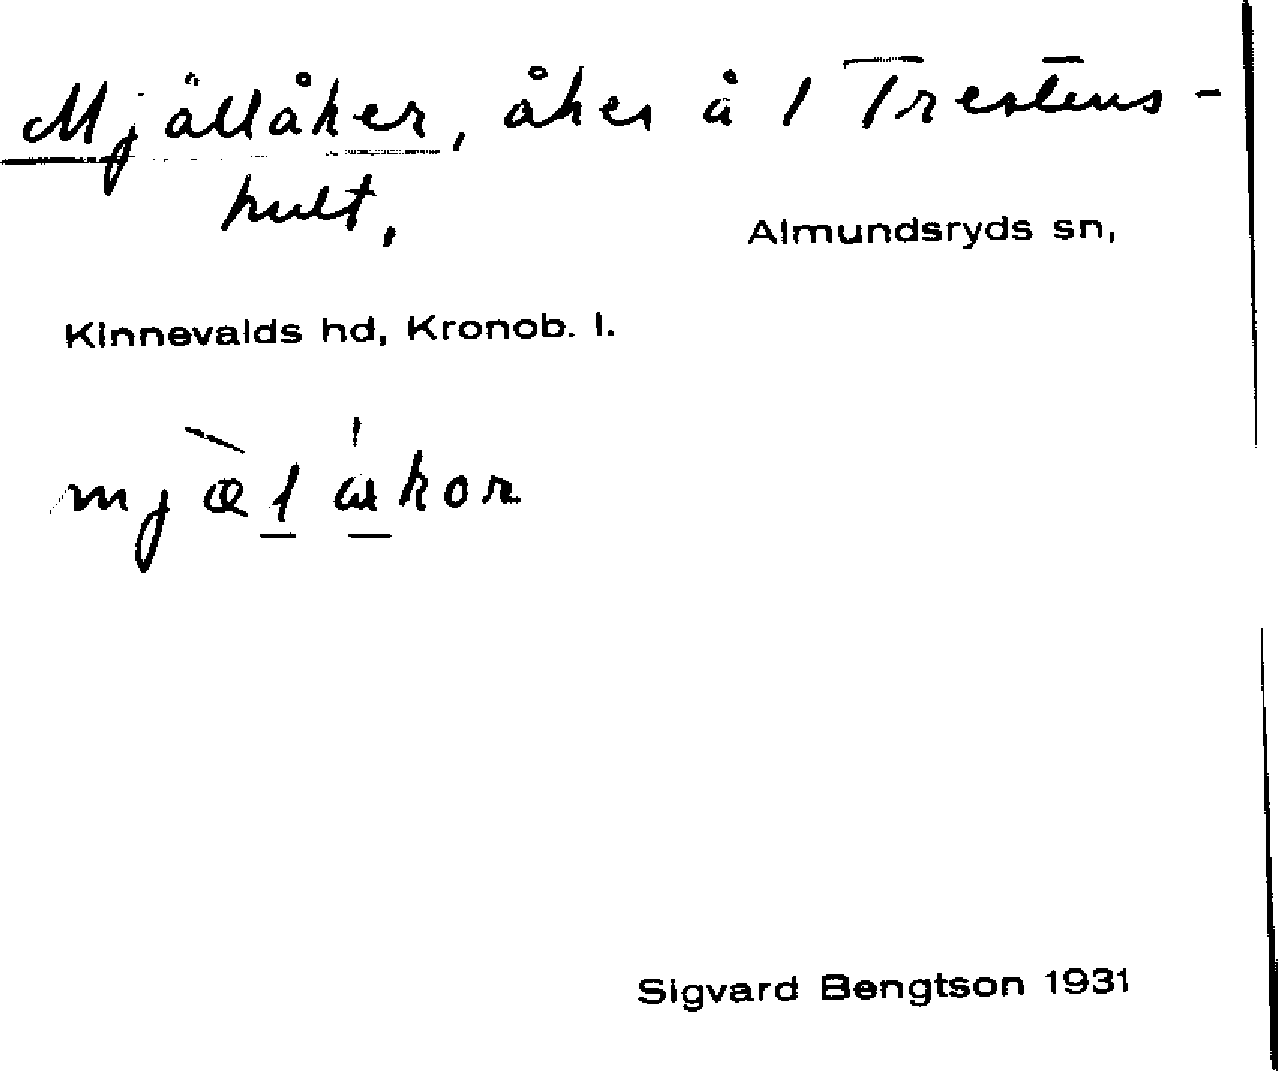 Mjällåker, åker å 1 Trestens-
hult,
Almundsryds sn,
Kinnevalds hd, Kronob. l.
mjæ̀lákor
Sigvard Bengtson 1931